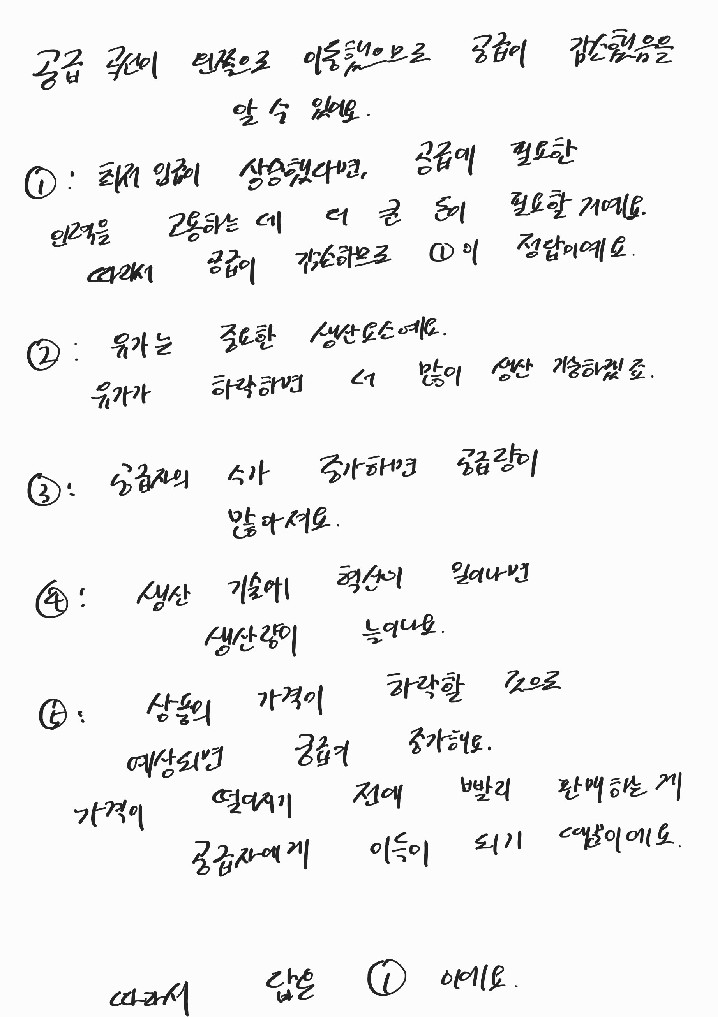 공급 곡선이 왼쪽으로 이동했으므로 공급이 감소했음을
알 수 있어요.
①: 최저 임금이 상승했다면, 공급에 필요한
인력을 고용하는 데 더 큰 돈이 필요할 거예요.
따라서 공급이 감소하므로 ①이 정답이에요.
②: 유가는 중요한 생산요소예요.
유가가 하락하면 더 많이 생산 가능하겠죠.
③: 공급자의 수가 증가하면 공급량이
많아져요.
④: 생산 기술에 혁신이 일어나면
생산량이 늘어나요.
⑤: 상품의 가격이 하락할 것으로
예상되면 공급이 증가해요.
가격이 떨어지기 전에 빨리 판매하는 게
공급자에게 이득이 되기 때문이에요.
따라서 답은 ①이에요.